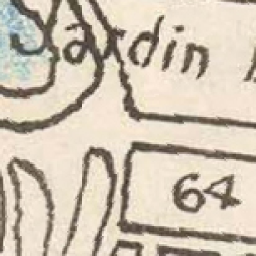 Jardin
64